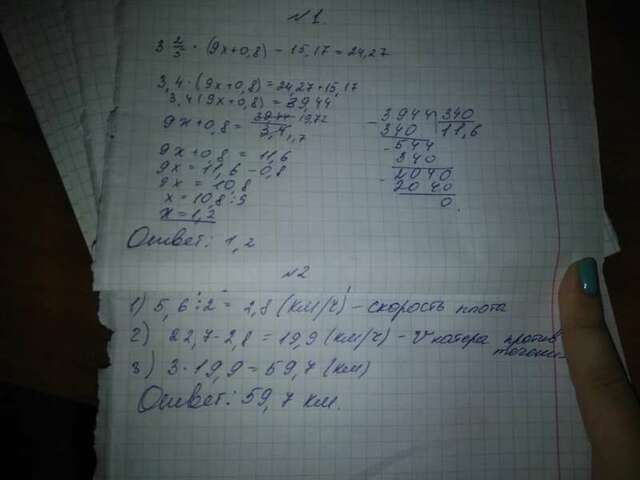 №1.
3 2/5 · (9x+0,8) - 15,17 = 24,27
3,4 · (9x+0,8) = 24,27+15,17
3,4 (9x+0,8) = 39,44
9x+0,8 = 39,44 19,72 / 3,4 1,7
9x+0,8 = 11,6
9x = 11,6 - 0,8
9x = 10,8
x = 10,8 : 9
x = 1,2
- 3944 | 340
340 | 11,6
- 544
340
- 2040
2040
0.
Ответ: 1,2
№2
1) 5,6 : 2 = 2,8 (км/ч) - скорость плота
2) 22,7 - 2,8 = 19,9 (км/ч) - V катера против
течения
3) 3 · 19,9 = 59,7 (км)
Ответ: 59,7 км.